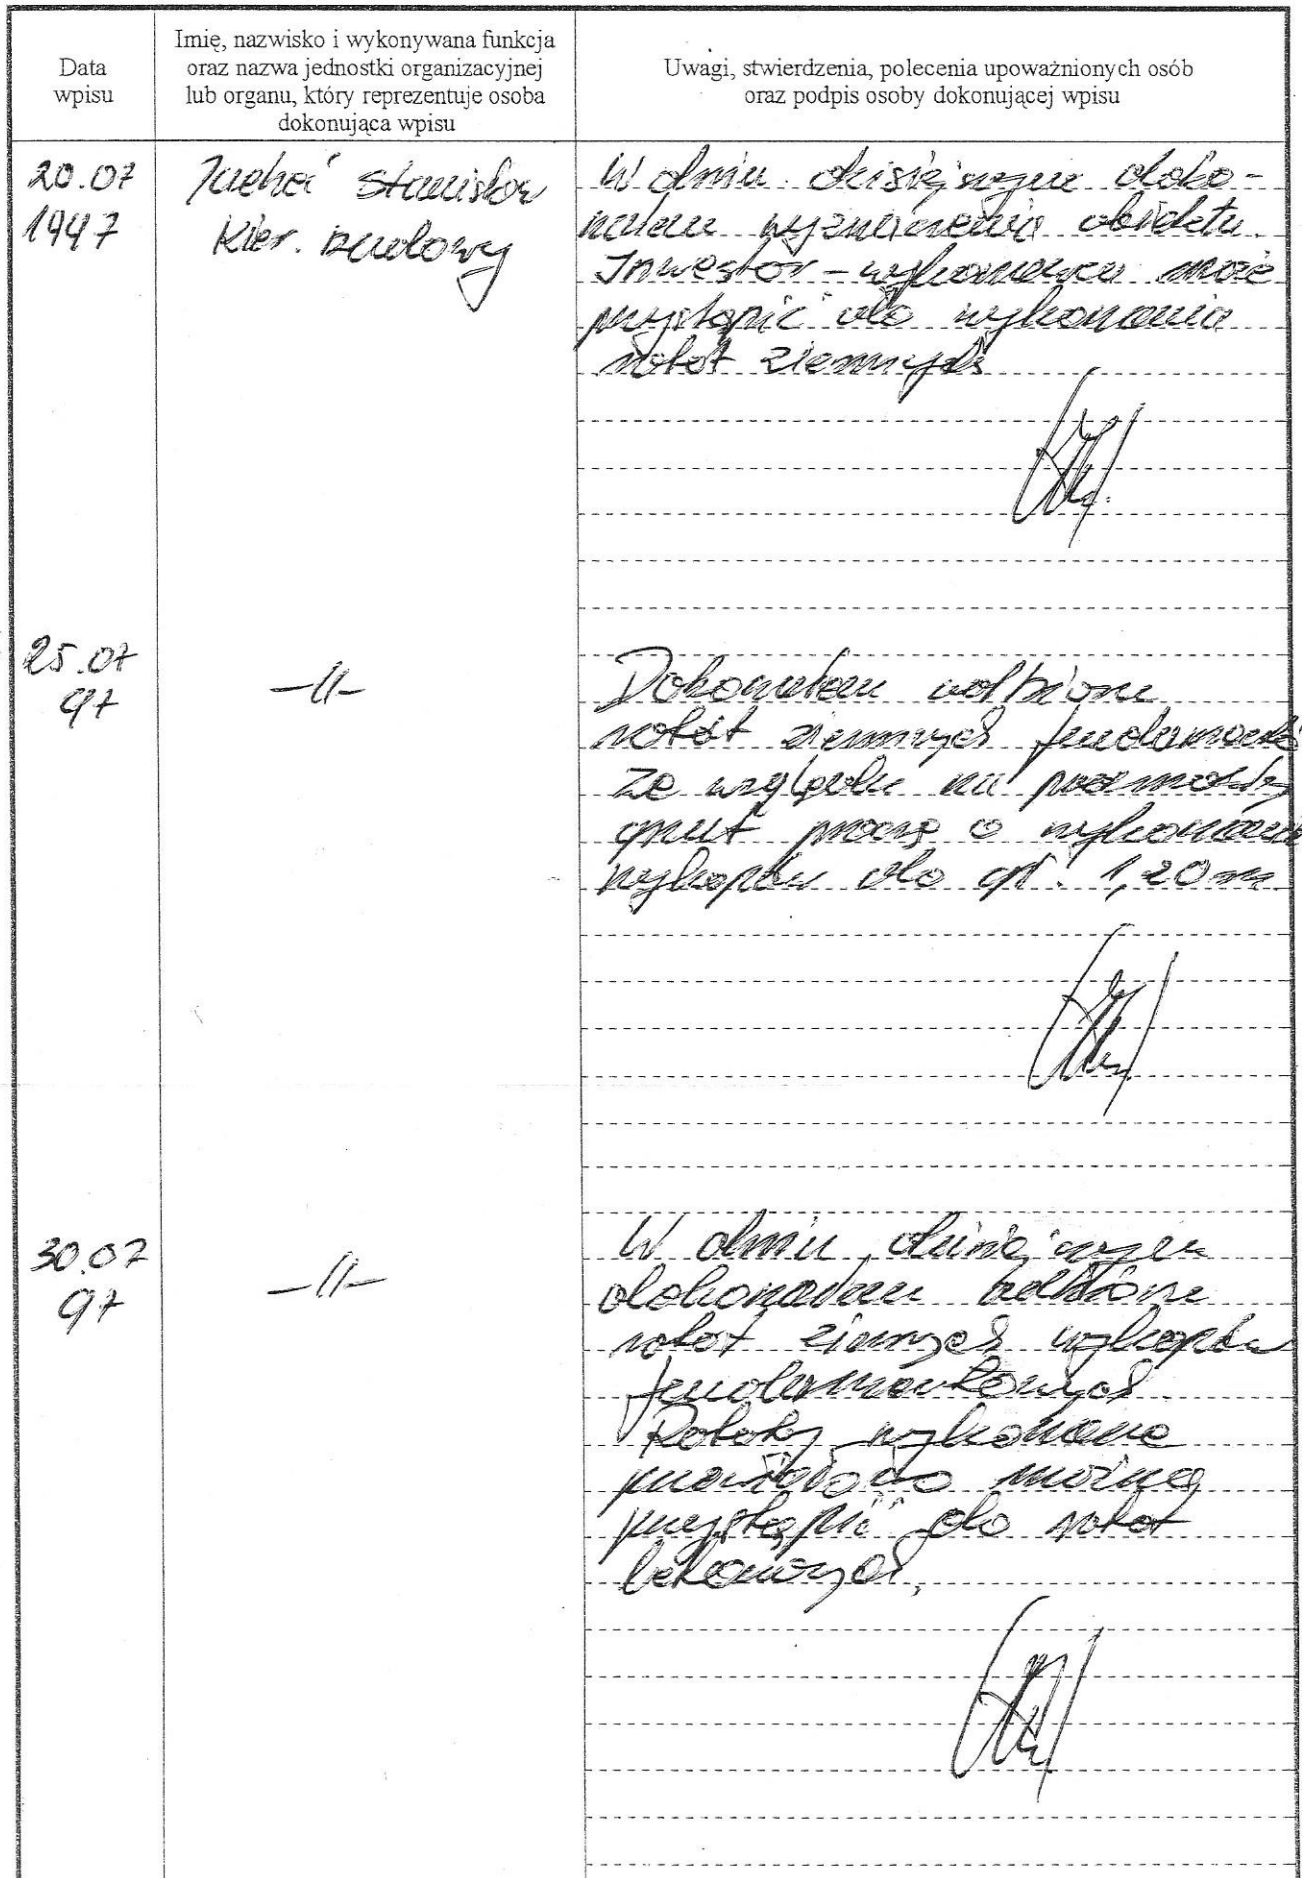 Data
wpisu
Imię, nazwisko i wykonywana funkcja
oraz nazwa jednostki organizacyjnej
lub organu, który reprezentuje osoba
dokonująca wpisu
Uwagi, stwierdzenia, polecenia upoważnionych osób
oraz podpis osoby dokonującej wpisu
20.07
1997
Stanisław
Kier. budowy
W dniu dzisiejszym doko-
nałem wyznaczenia obiektu.
Inwestor - wykonawca może
przystąpić do wykonania
robót ziemnych
25.07
97
-//-
Dokonałem odbioru
robót ziemnych
ze względu na
grunt proszę o wykonanie
wykopów do gł. 1,20 m
30.07
97
-//-
W dniu dzisiejszym
dokonałem odbioru
robót ziemnych wykopów
fundamentowych.
Roboty wykonane
prawidłowo można
przystąpić do robót
betonowych.